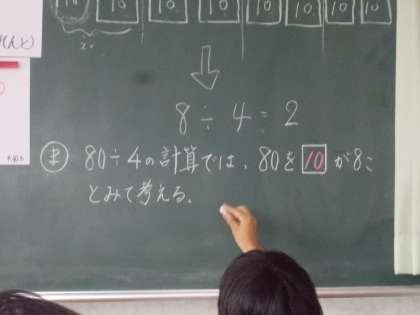 10 10 10 10 10 10 10 10
20
8÷4=2
ま 80÷4の計算では、80を10が8こ
とみて考える。